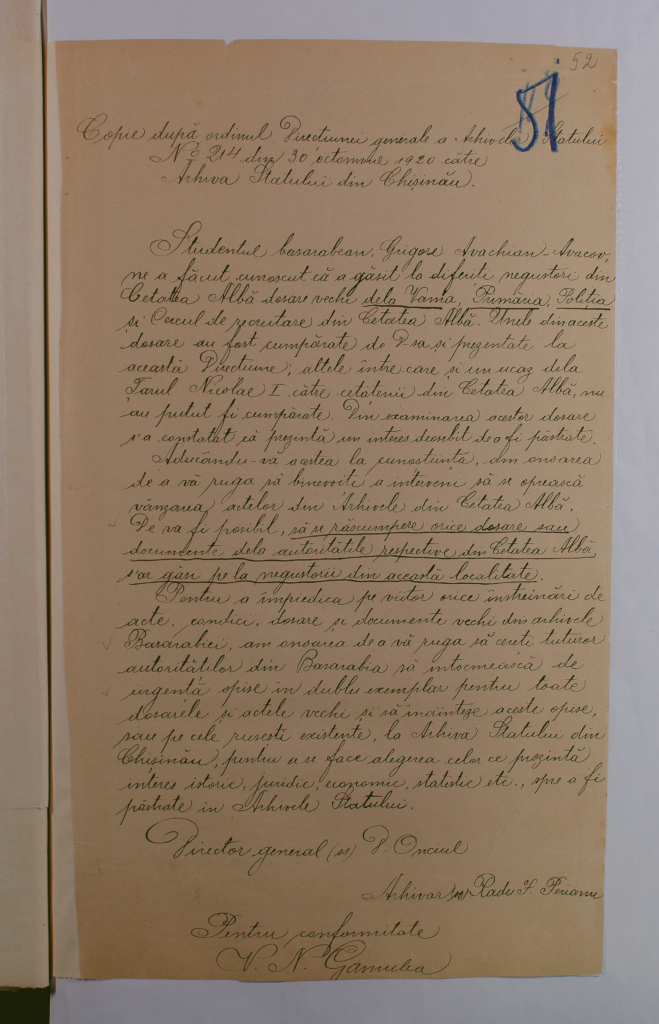 52
51
Copie după ordinul Direcțiunei generale a Arhivelor Statului
No 214 din 30 octomvrie 1920 către
Arhiva Statului din Chișinău.
Studentul basarabean, Grigore Avachian-Avacov,
ne a făcut cunoscut că a găsit la diferiți negustori din
Cetatea Albă dosare vechi dela Vama, Primăria, Poliția
și Cercul de recrutare din Cetatea Albă. Unele din aceste
dosare au fost cumpărate de D-sa și prezentate la
această Direcțiune; altele între care și un ucaz dela
Țarul Nicolae I către cetățenii din Cetatea Albă, nu
au putut fi cumpărate. Din examinarea acestor dosare
s'a constatat că prezintă un interes deosebit de a fi păstrate.
Aducându-vă acestea la cunoștiință, am onoarea
de a vă ruga să binevoiți a interveni să se oprească
vânzarea actelor din Arhivele din Cetatea Albă.
De va fi posibil, să se răscumpere orice dosare sau
documente dela autoritățile respective din Cetatea Albă,
s'ar găsi pe la negustorii din această localitate.
Pentru a împiedica pe viitor orice înstreinări de
acte, condici, dosare și documente vechi din arhivele
Basarabiei, am onoarea de a vă ruga să cereți tuturor
autorităților din Basarabia să întocmească de
urgență opise in dublu exemplar pentru toate
dosarele și actele vechi și să înainteze aceste opise,
sau pe cele rusești existente, la Arhiva Statului din
Chișinău, pentru a se face alegerea celor ce prezintă
interes istoric, juridic, economic, statistic etc., spre a fi
păstrate in Arhivele Statului.
Director general (ss) D. Onciul
Arhivar (ss) Radu F.
Pentru conformitate
V. N.